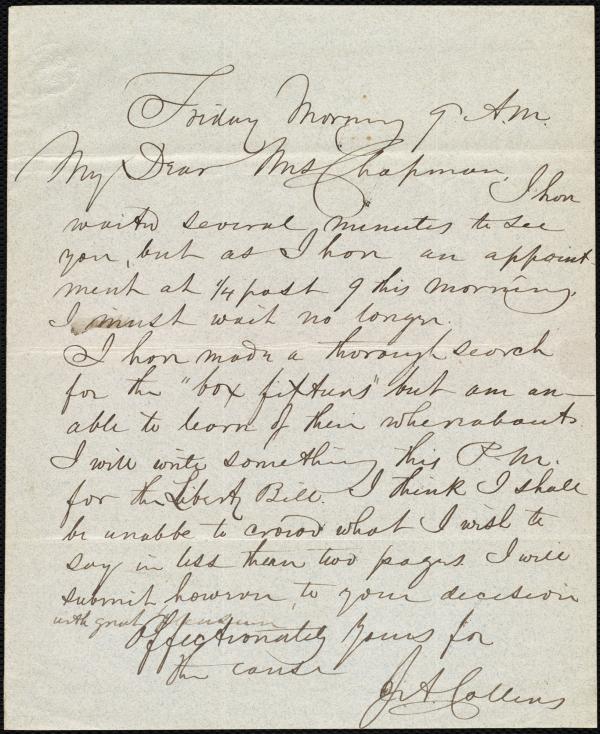 Friday Morning 9 A.M.
My Dear Mrs Chapman,
I have
waited several minutes to see
you, but as I have an appoint-
ment at 1/4 past 9 this morning,
I must wait no longer.
I have made a thorough search
for the "box fixtures" but am un-
able to learn of their whereabouts.
I will write something this P.M.
for the Liberty Bell. I think I shall
be unabbe to crowd what I wish to
say in less than two pages. I will
submit, however, to your decision
with great pleasure
Affectionately yours for
the cause
J. A. Collins